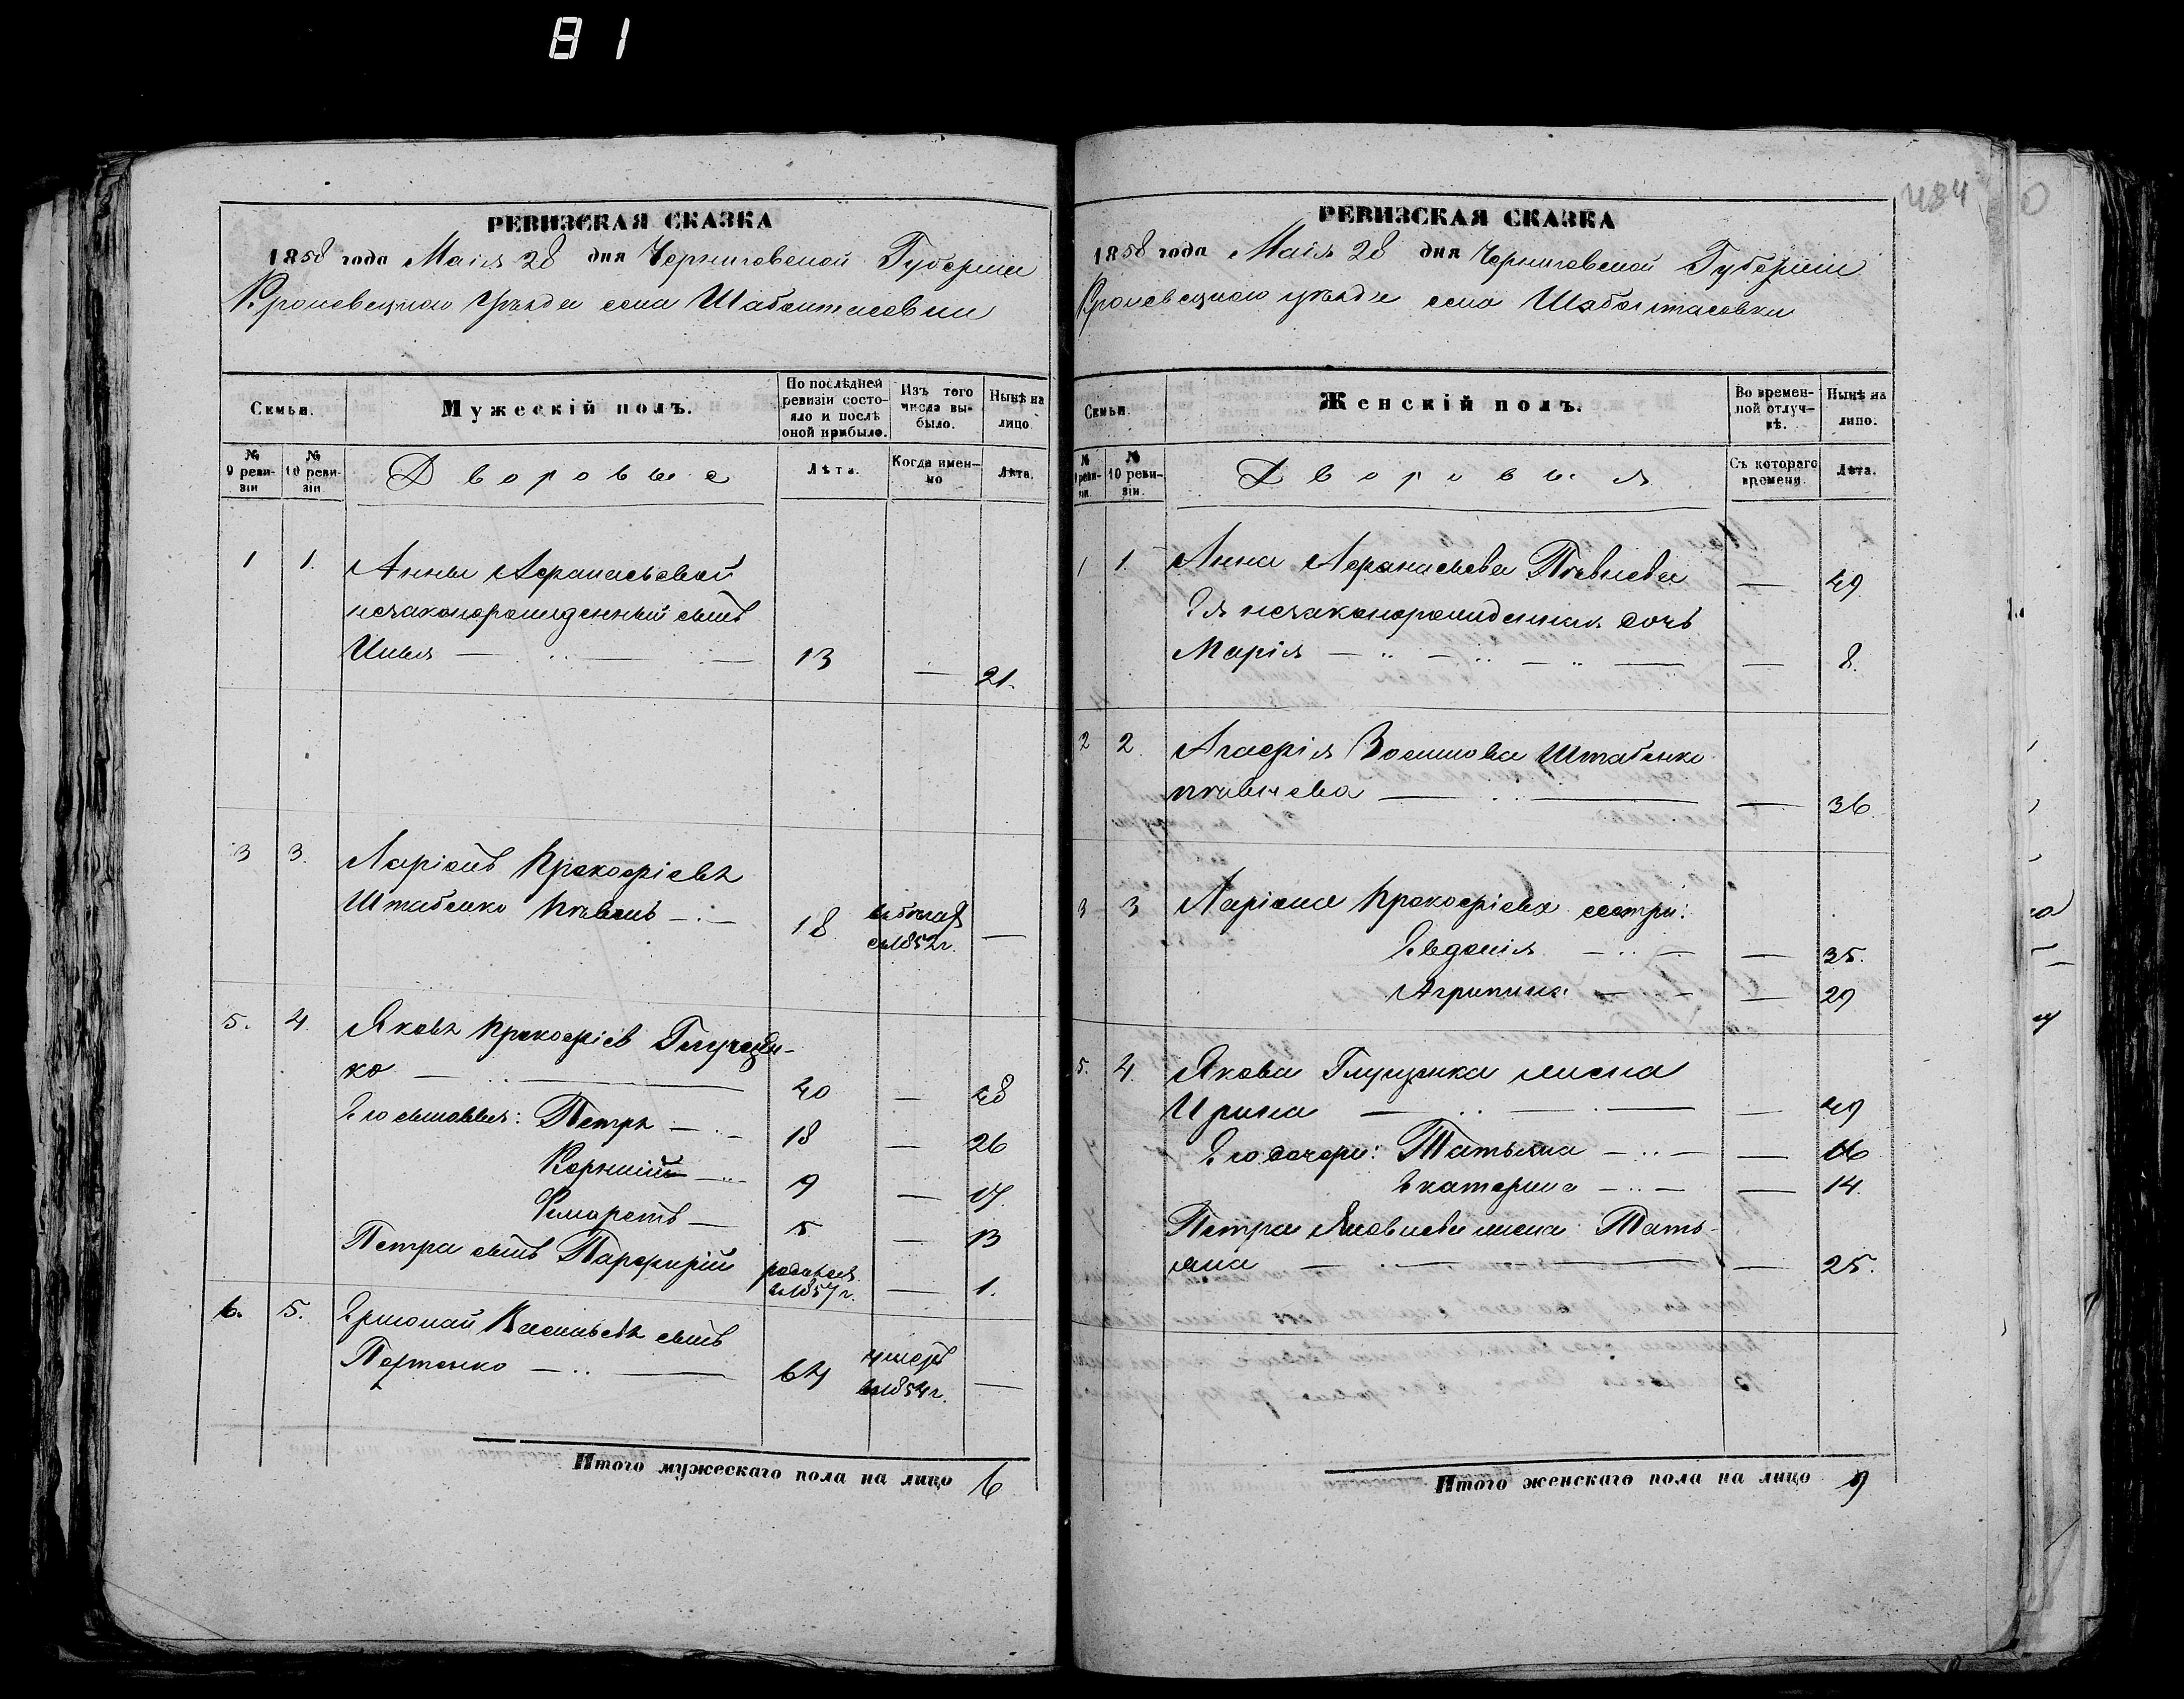 81
РЕВИЗСКАЯ СКАЗКА
1858 года Маія 28 дня Черниговской Губерніи
Кролевецкаго уѣзда села Шабалтасовки
Семьи.
Мужескій полъ.
По послѣдней ревизіи состояло и послѣ оной прибыло.
Изъ того числа выбыло.
Нынѣ на лицо
№ 9 ревизіи
№ 10 ревизіи.
Дворовые
Лѣта.
Когда именно
Лѣта.
1 1. Анны Афанасьевой
незаконорожденный сынъ
Илья 13 — 21.
3 3. Ларіонъ Прокофіевъ
Штабенко 18 1852 г. —
5. 4 Яковъ Прокофіевъ Глущен-
ко 40 — 48
Его сыновья: Петръ 18 — 26
Корнилій 9 — 17.
Филаретъ 5 — 13
Петра сынъ Парфирій родился в 1857 г. — 1.
6. 5. Ермолай Васильевъ сынъ
Портенко 64 умеръ в 1854 г. —
Итого мужескаго пола на лицо 6
484
РЕВИЗСКАЯ СКАЗКА
1858 года Маія 28 дня Черниговской Губерніи
Кролевецкаго уѣзда села Шабалтасовки
Семьи.
Женскій полъ.
Во временной отлучкѣ.
Нынѣ на лицо.
№ 9 ревизіи.
№ 10 ревизіи.
Дворовыя
Съ котораго времени.
Лѣта.
1 1. Анна Афанасьева — 49
Ея незаконорожденная дочь
Марія — 8.
2 2. Агафія Штабенко
— 36.
3 3 Ларіона Прокофіева сестры:
Евдокія — 35.
Агрипина — 29
5. 4. Якова Глущенка жена
Ирина — 49
Его дочери: Татьяна — 16
Екатерина — 14.
Петра Яковлева жена Тать-
яна — 25.
Итого женскаго пола на лицо 9